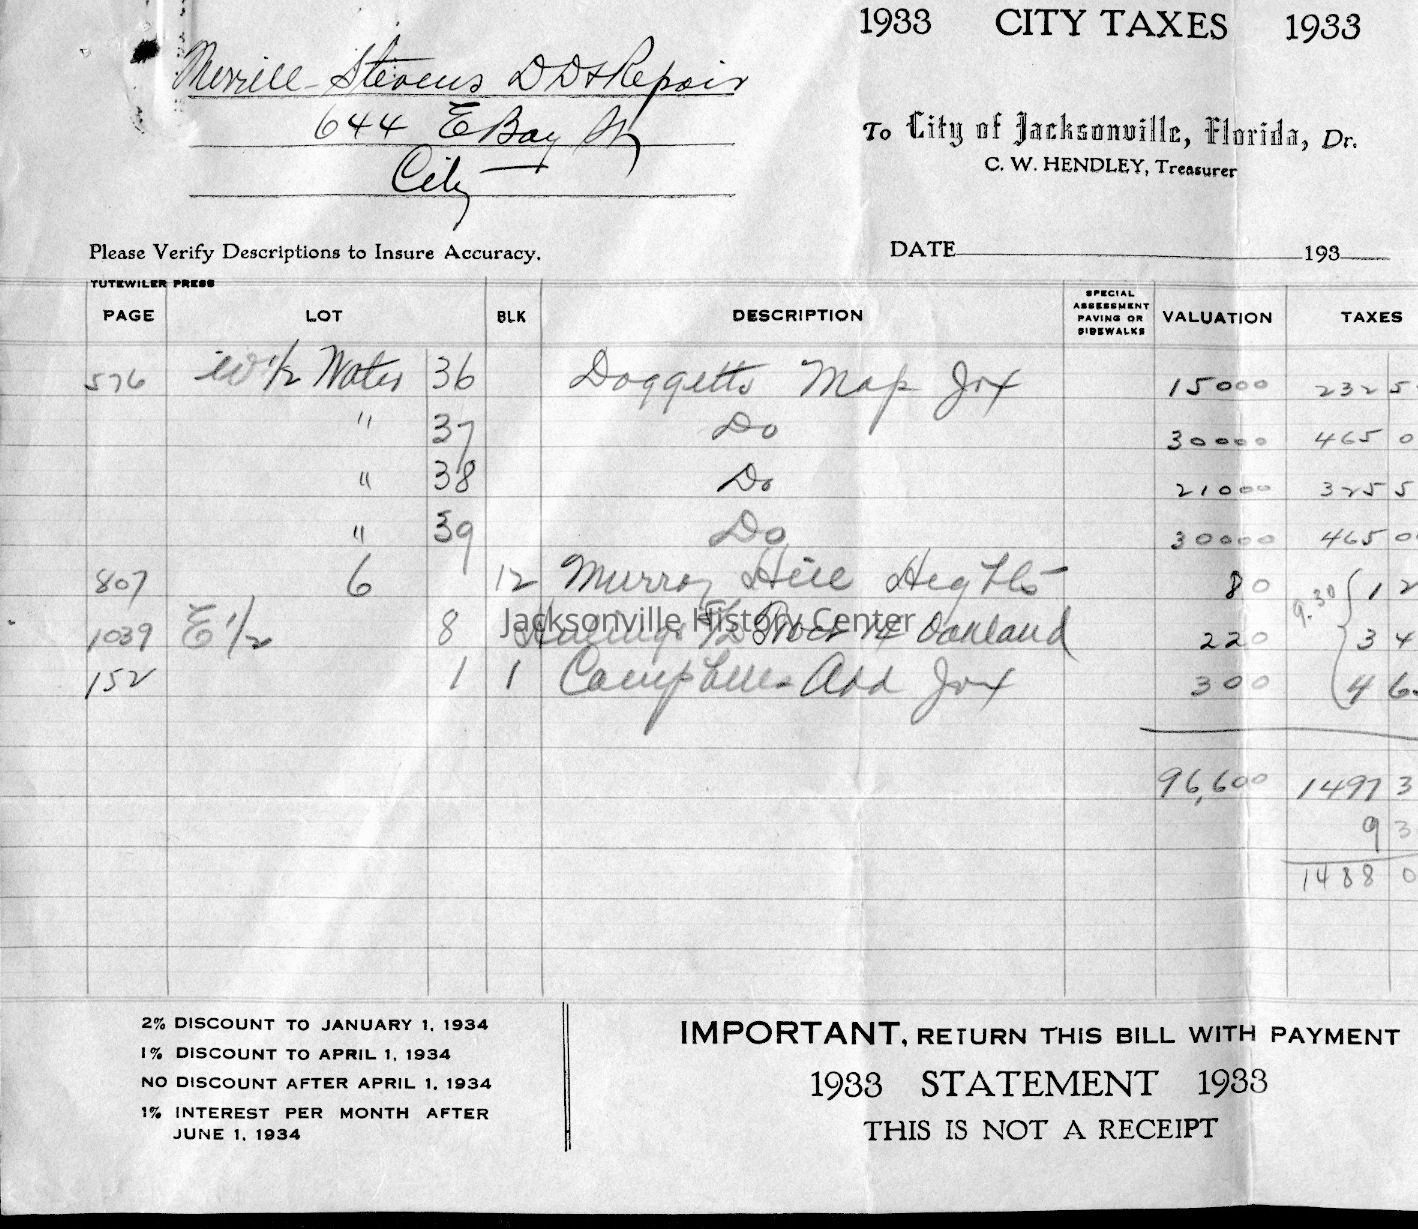 1933 CITY TAXES 1933
Merrill-Stevens D D & Repair
644 E Bay St
City
To City of Jacksonville, Florida, Dr.
C. W. HENDLEY, Treasurer
Please Verify Descriptions to Insure Accuracy.
DATE 193
TUTEWILER PRESS
PAGE LOT BLK DESCRIPTION SPECIAL ASSESSMENT PAVING OR SIDEWALKS VALUATION TAXES
576 W 1/2 Water 36 Doggetts Map Jax 15000 232 5
" 37 Do 30000 465 0
" 38 Do 21000 325 5
" 39 Do 30000 465 0
807 6 12 Murray Hill Heghts 80 9.30 1 2
1039 E 1/2 8 Oakland 220 3 4
152 1 1 Campbells Add Jax 300 4 6
96,600 1497 3
9 3
1488 0
Jacksonville History Center
2% DISCOUNT TO JANUARY 1, 1934
1% DISCOUNT TO APRIL 1, 1934
NO DISCOUNT AFTER APRIL 1, 1934
1% INTEREST PER MONTH AFTER
JUNE 1, 1934
IMPORTANT, RETURN THIS BILL WITH PAYMENT
1933 STATEMENT 1933
THIS IS NOT A RECEIPT